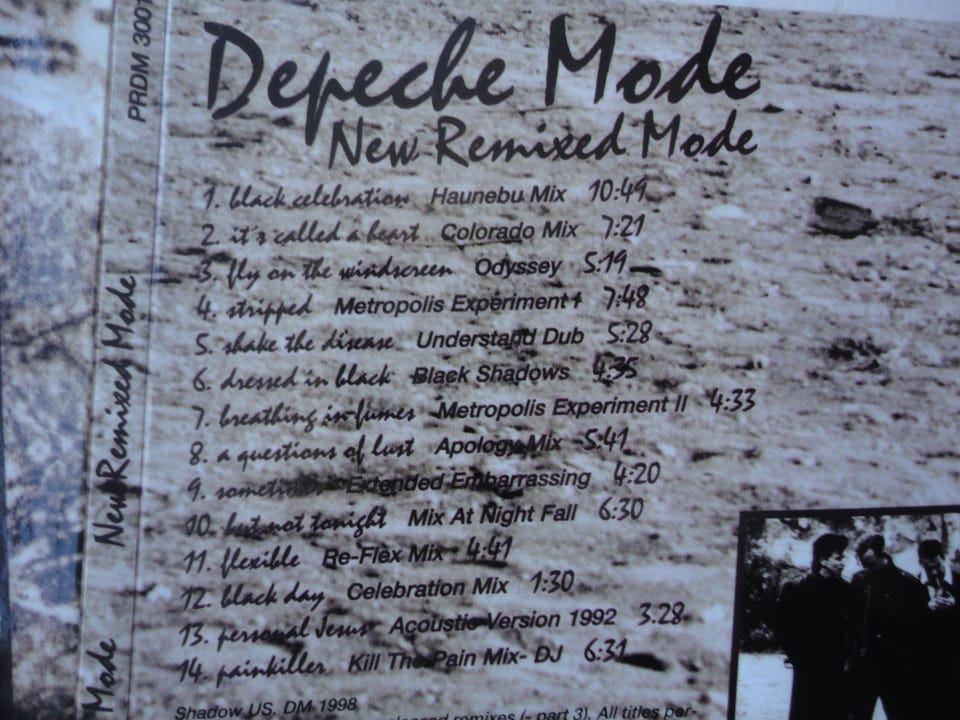 PRDM 3001
New Remixed Mode
Mode
Depeche Mode
New Remixed Mode
1. black celebration Haunebu Mix 10:49
2. it's called a heart Colorado Mix 7:21
3. fly on the windscreen Odyssey 5:19
4. stripped Metropolis Experiment I 7:48
5. shake the disease Understand Dub 5:28
6. dressed in black Black Shadows 4:35
7. breathing in fumes Metropolis Experiment II 4:33
8. a questions of lust Apology Mix 5:41
9. sometimes Extended Embarrassing 4:20
10. but not tonight Mix At Night Fall 6:30
11. flexible Re-Flex Mix 4:41
12. black day Celebration Mix 1:30
13. personal Jesus Acoustic Version 1992 3.28
14. painkiller Kill The Pain Mix- DJ 6:31
Shadow US. DM 1998
remixes (- part 3). All titles per-